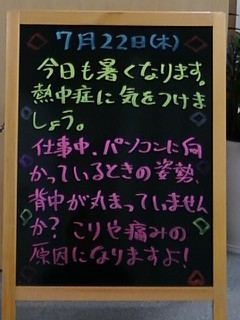 7月22日(木)
今日も暑くなります。
熱中症に気をつけま
しょう。
仕事中、パソコンに向
かっているときの姿勢、
背中が丸まっていません
か？こりや痛みの
原因になりますよ！